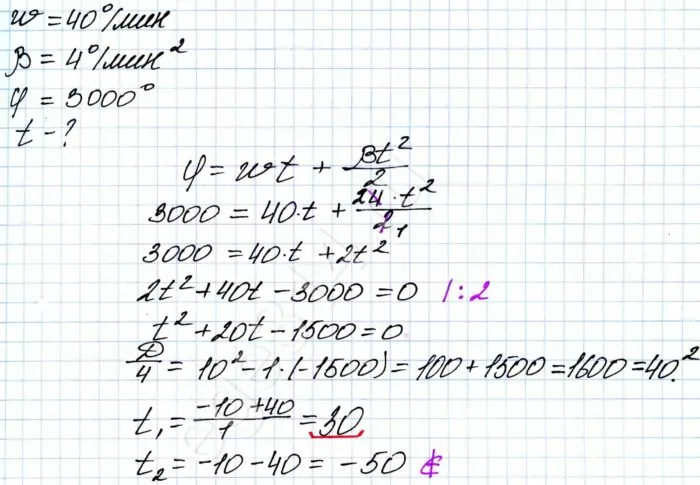 w = 40°/мин
β = 4°/мин²
φ = 3000°
t - ?
φ = wt + βt²/2
3000 = 40·t + 4·t²/2 2 1
3000 = 40·t + 2t²
2t² + 40t - 3000 = 0 |:2
t² + 20t - 1500 = 0
D/4 = 10² - 1·(-1500) = 100 + 1500 = 1600 = 40².
t₁ = -10 + 40/1 = 30
t₂ = -10 - 40 = -50 ∉